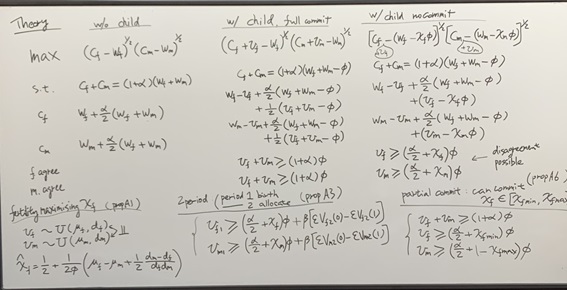 Theory w/o child w/ child, full commit w/ child no commit
max (C_f - W_f)^{1/2} (C_m - W_m)^{1/2} (C_f + V_f - W_f)^{1/2} (C_m + V_m - W_m)^{1/2} [C_f - (W_f - χ_f φ)]^{1/2} [C_m - (W_m - χ_m φ)]^{1/2}
+V_f +V_m
s.t. C_f + C_m = (1+α)(W_f + W_m) C_f + C_m = (1+α)(W_f + W_m - φ) C_f + C_m = (1+α)(W_f + W_m - φ)
C_f W_f + α/2 (W_f + W_m) W_f - V_f + α/2 (W_f + W_m - φ) W_f - V_f + α/2 (W_f + W_m - φ)
+ 1/2 (V_f + V_m - φ) + (V_f - χ_f φ)
C_m W_m + α/2 (W_f + W_m) W_m - V_m + α/2 (W_f + W_m - φ) W_m - V_m + α/2 (W_f + W_m - φ)
+ 1/2 (V_f + V_m - φ) + (V_m - χ_m φ)
f agree V_f + V_m ≥ (1+α) φ V_f ≥ (α/2 + χ_f) φ
m. agree V_f + V_m ≥ (1+α) φ V_m ≥ (α/2 + χ_m) φ
← disagreement possible
fertility maximising χ_f (prop A1)
V_f ~ U(μ_f, d_f)
V_m ~ U(μ_m, d_m) ⫫
χ̂_f = 1/2 + 1/2φ (μ_f - μ_m + 1/2 d_m - d_f / d_f d_m)
2 period (period 1 birth
2 allocate (prop A3)
{ V_{f1} ≥ (α/2 + χ_f) φ + β [E V_{f2}(0) - E V_{f2}(1)]
V_{m1} ≥ (α/2 + χ_m) φ + β [E V_{m2}(0) - E V_{m2}(1)]
partial commit : can commit (prop A6)
χ_f ∈ [χ_{fmin}, χ_{fmax}]
{ V_f + V_m ≥ (1+α) φ
V_f ≥ (α/2 + χ_{fmin}) φ
V_m ≥ (α/2 + 1 - χ_{fmax}) φ